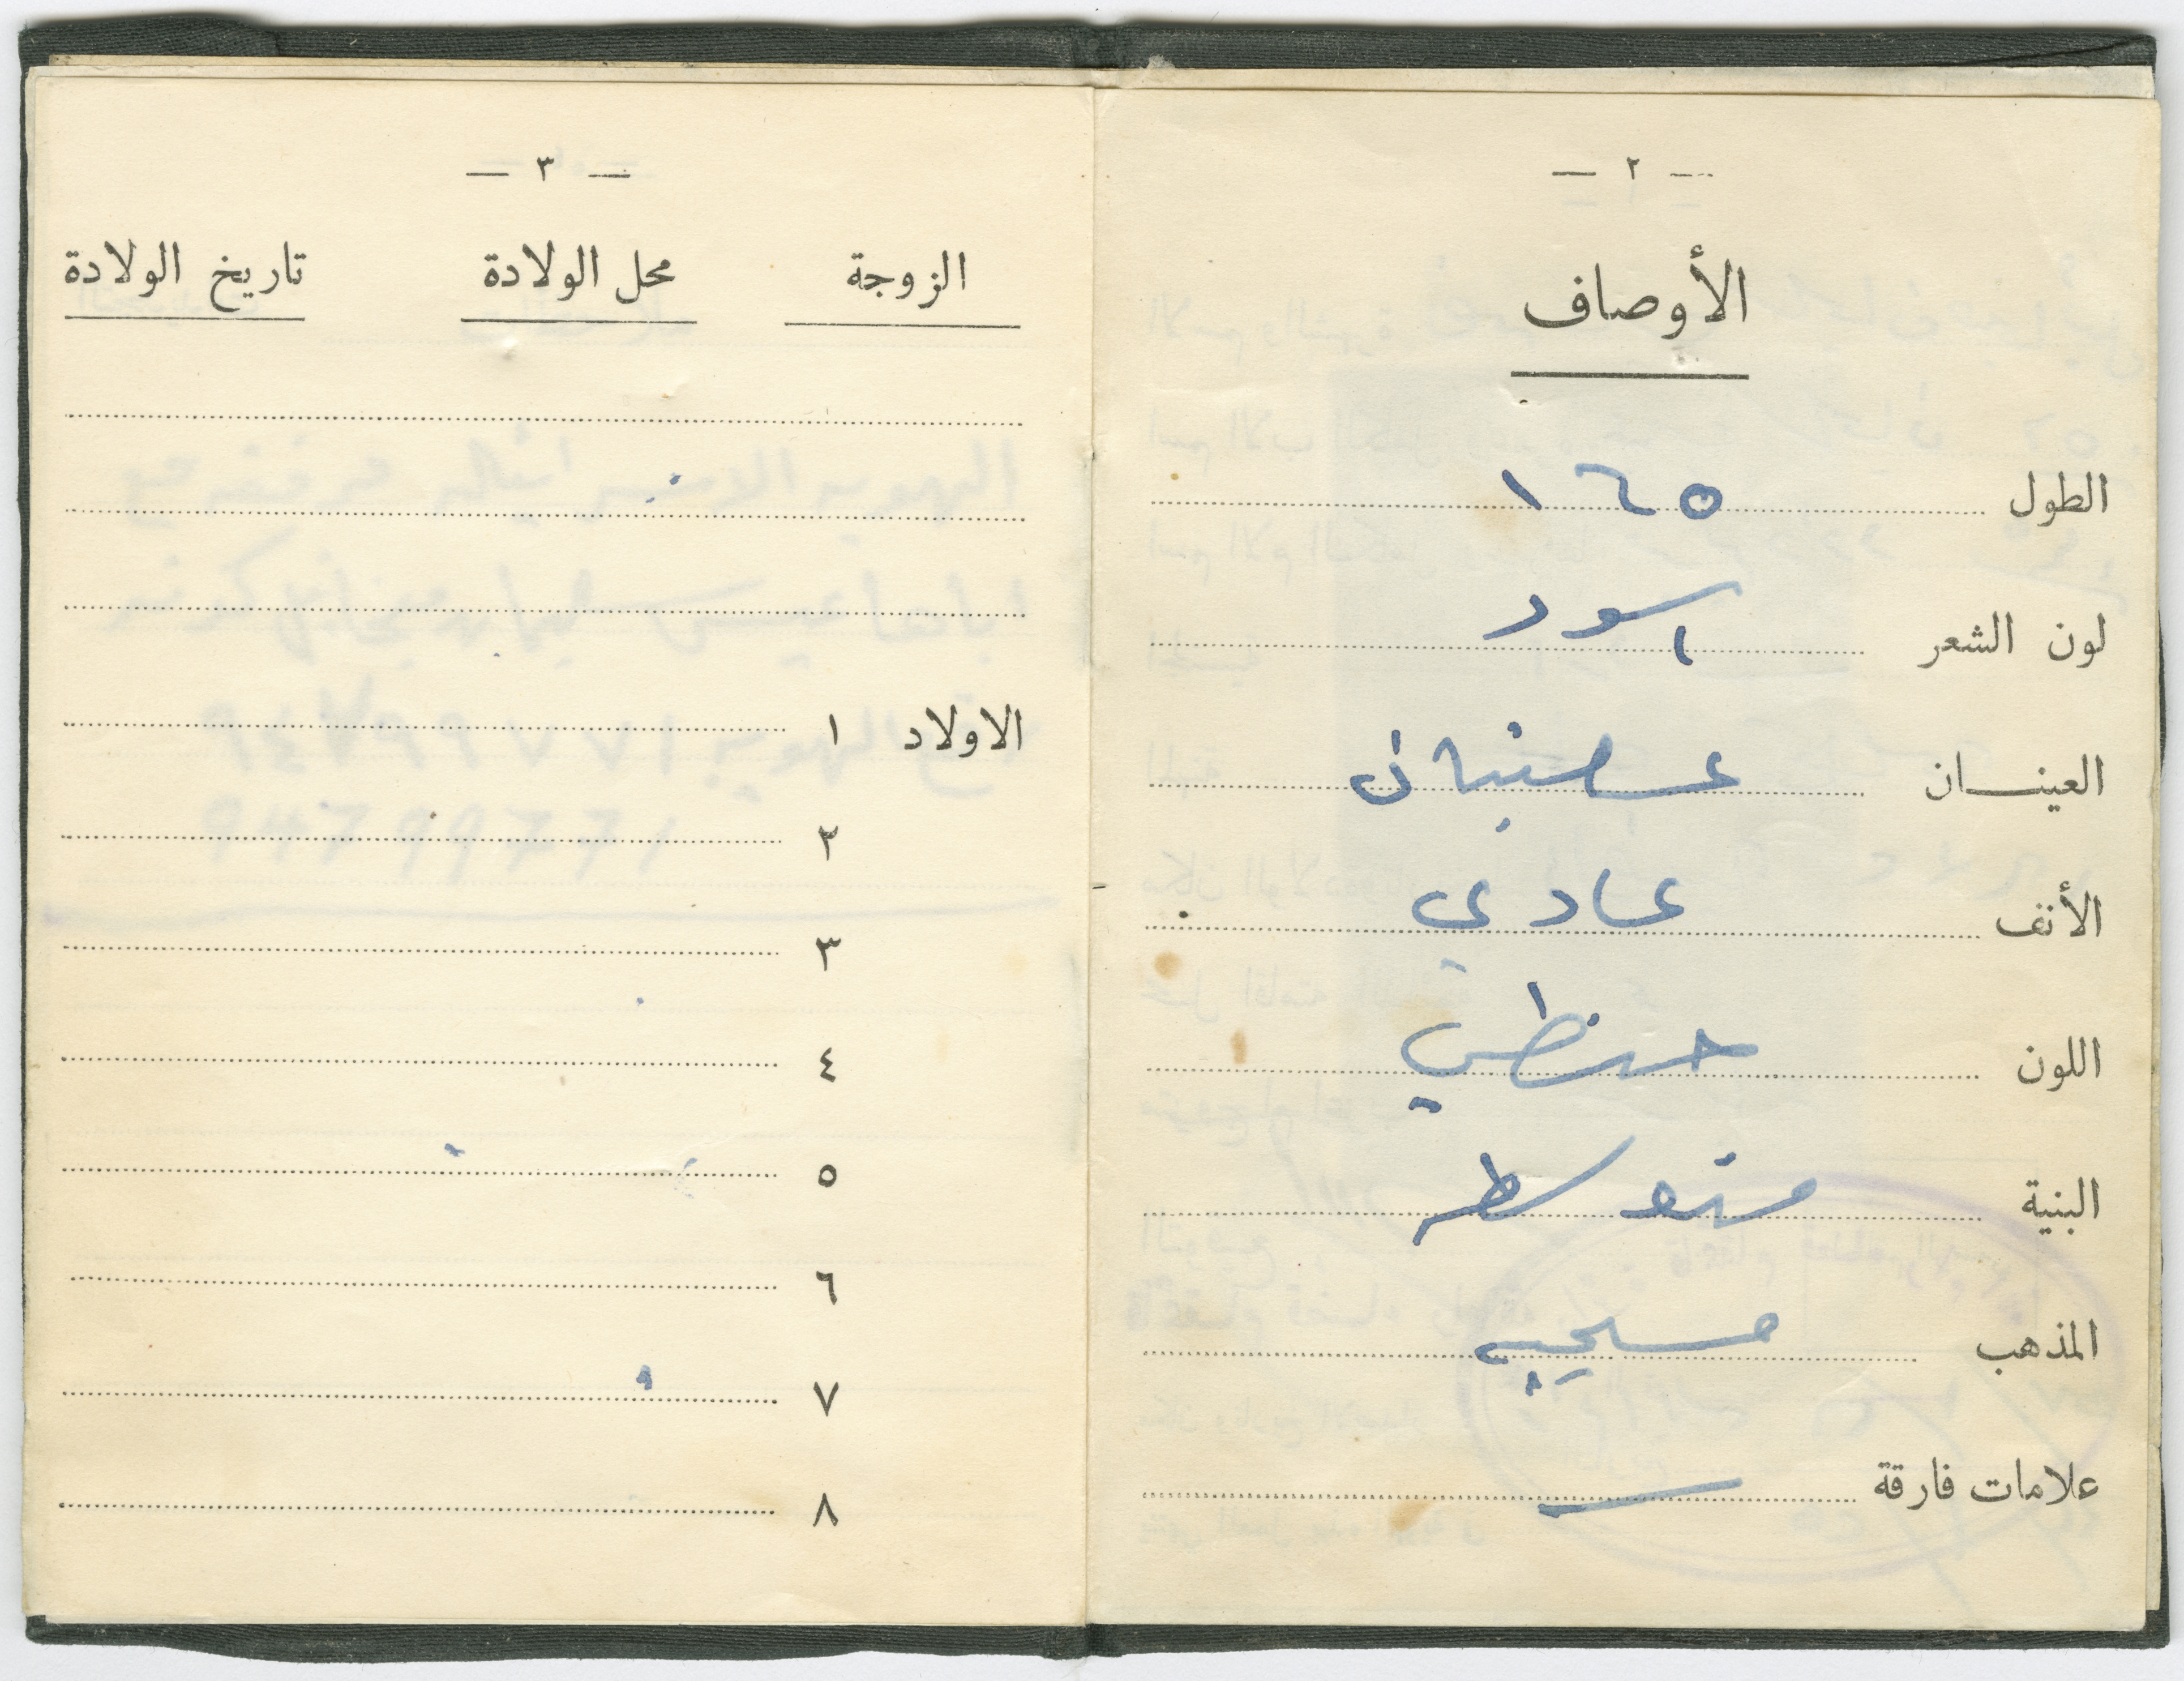 — ٢ —
الأوصاف
الطول ١٦٥
لون الشعر اسود
العينـــان عسليتان
الأنف عادي
اللون حنطي
البنية متوسط
المذهب مسيحي
علامات فارقة —
— ٣ —
الزوجة محل الولادة تاريخ الولادة
الاولاد ١
٢
٣
٤
٥
٦
٧
٨